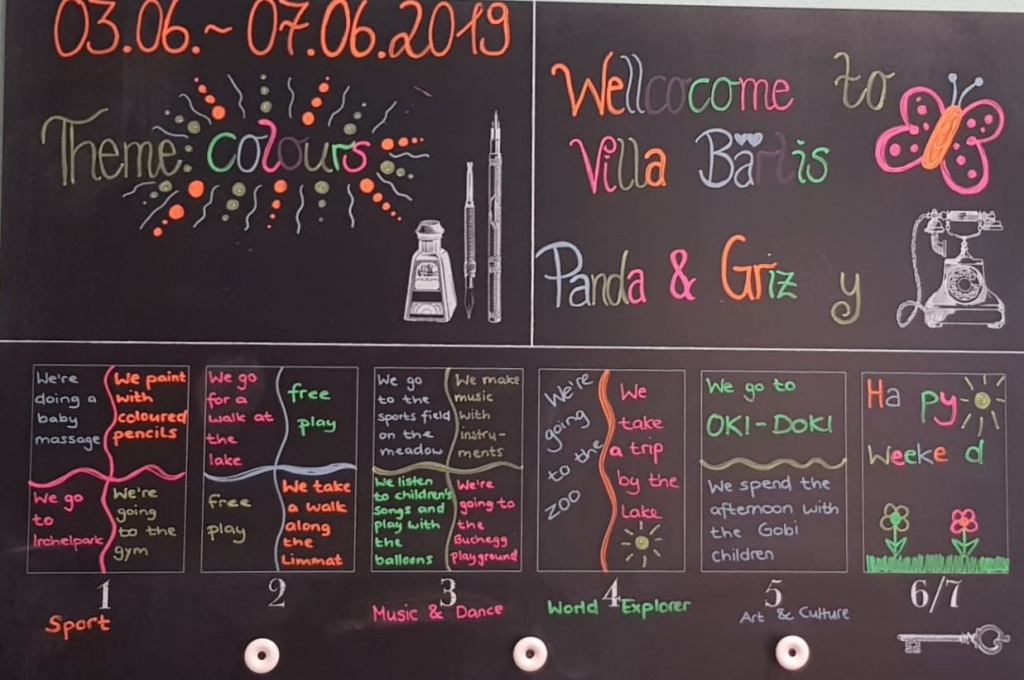 03.06.~ 07.06.2019
Theme: colours
Wellcocome to
Villa Bärlis
Panda & Griz y
We're
doing a
baby
massage
We paint
with
coloured
pencils
We go
to
Irchelpark
We're
going
to the
gym
1
We go
for a
walk at
the
lake
free
play
free
play
We take
a walk
along
the
Limmat
2
We go
to the
sports field
on the
meadow
We make
music
with
instru-
ments
We listen
to children's
songs and
play with
the
balloons
We're
going to
the
Buchegg
playground
3
We're
going
to the
zoo
We
take
a trip
by the
Lake
4
We go to
OKI-DOKI
We spend the
afternoon with
the Gobi
children
5
Ha py
Weeke d
6/7
Sport
Music & Dance
World Explorer
Art & Culture